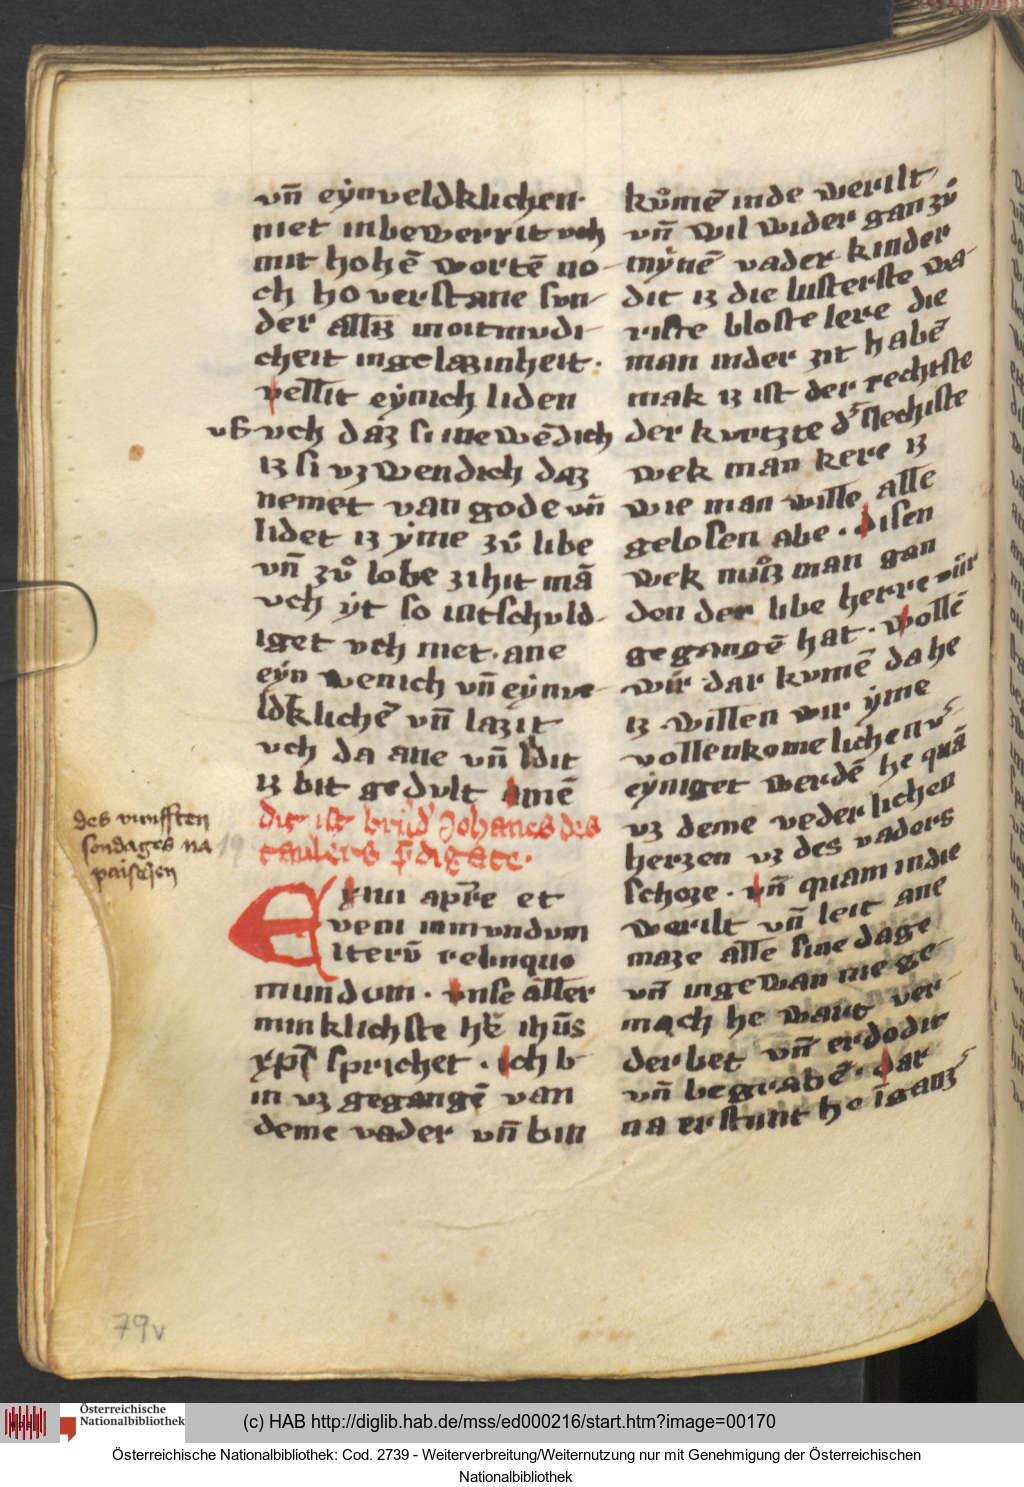 vn̄ eẏnveldklichen·
niet inbewerrit vch
mit hohē wortē no-
ch ho verstane sun-
der allis in oitmvdi-
cheit ingelazinheit·
vellit eẏnich liden
vch daz si inewēdich
iz si vzwendich daz
nemet van gode vn̄
lidet iz ẏme zů libe
vn̄ zů lobe zihit mā
vch ẏt so intschuld-
iget vch niet · ane
eẏn wenich vn̄ eẏnve-
ldklichē vn̄ lazit
vch da ane vn̄ lidit
iz bit gedvlt amē
dit ist brůd' Johanes des
taulers p̄digate·
des vunfften
sondages na
paisschen
Exivi a pr̄e et
veni in mundum
iterū relinquo
mundum · vnse aller
minklichste hē ihūs
xp̄s sprichet · ich b-
in vz gegangē van
deme vader vn̄ bin
kůmē in de werilt
vn̄ wil wider gan zů
mẏnē vader kinder
dit iz die lusterste wa-
riste bloste lere die
man in der zit habē
mak iz ist der rechtste
der kvrtzte d' slechiste
wek man kere iz
wie man wille alle
gelosen abe · disen
wek můz man gan
den der libe herre vůr
gegangē hat · wollē
wir dar kvmē da he
iz willen wir ẏme
vollenkomelichen v-
eẏniget werdē he quā
vz deme vederlichen
herzen vz des vaders
schoze · vn̄ quam in die
werilt vn̄ leit ane
maze alle sine dage
vn̄ ingewan nie ge-
mach he wart ver-
derbet vn̄ erdodit
vn̄ begrabē · dar
na erstunt he
79v
(c) HAB http://diglib.hab.de/mss/ed000216/start.htm?image=00170
Österreichische
Nationalbibliothek
Österreichische Nationalbibliothek: Cod. 2739 - Weiterverbreitung/Weiternutzung nur mit Genehmigung der Österreichischen
Nationalbibliothek